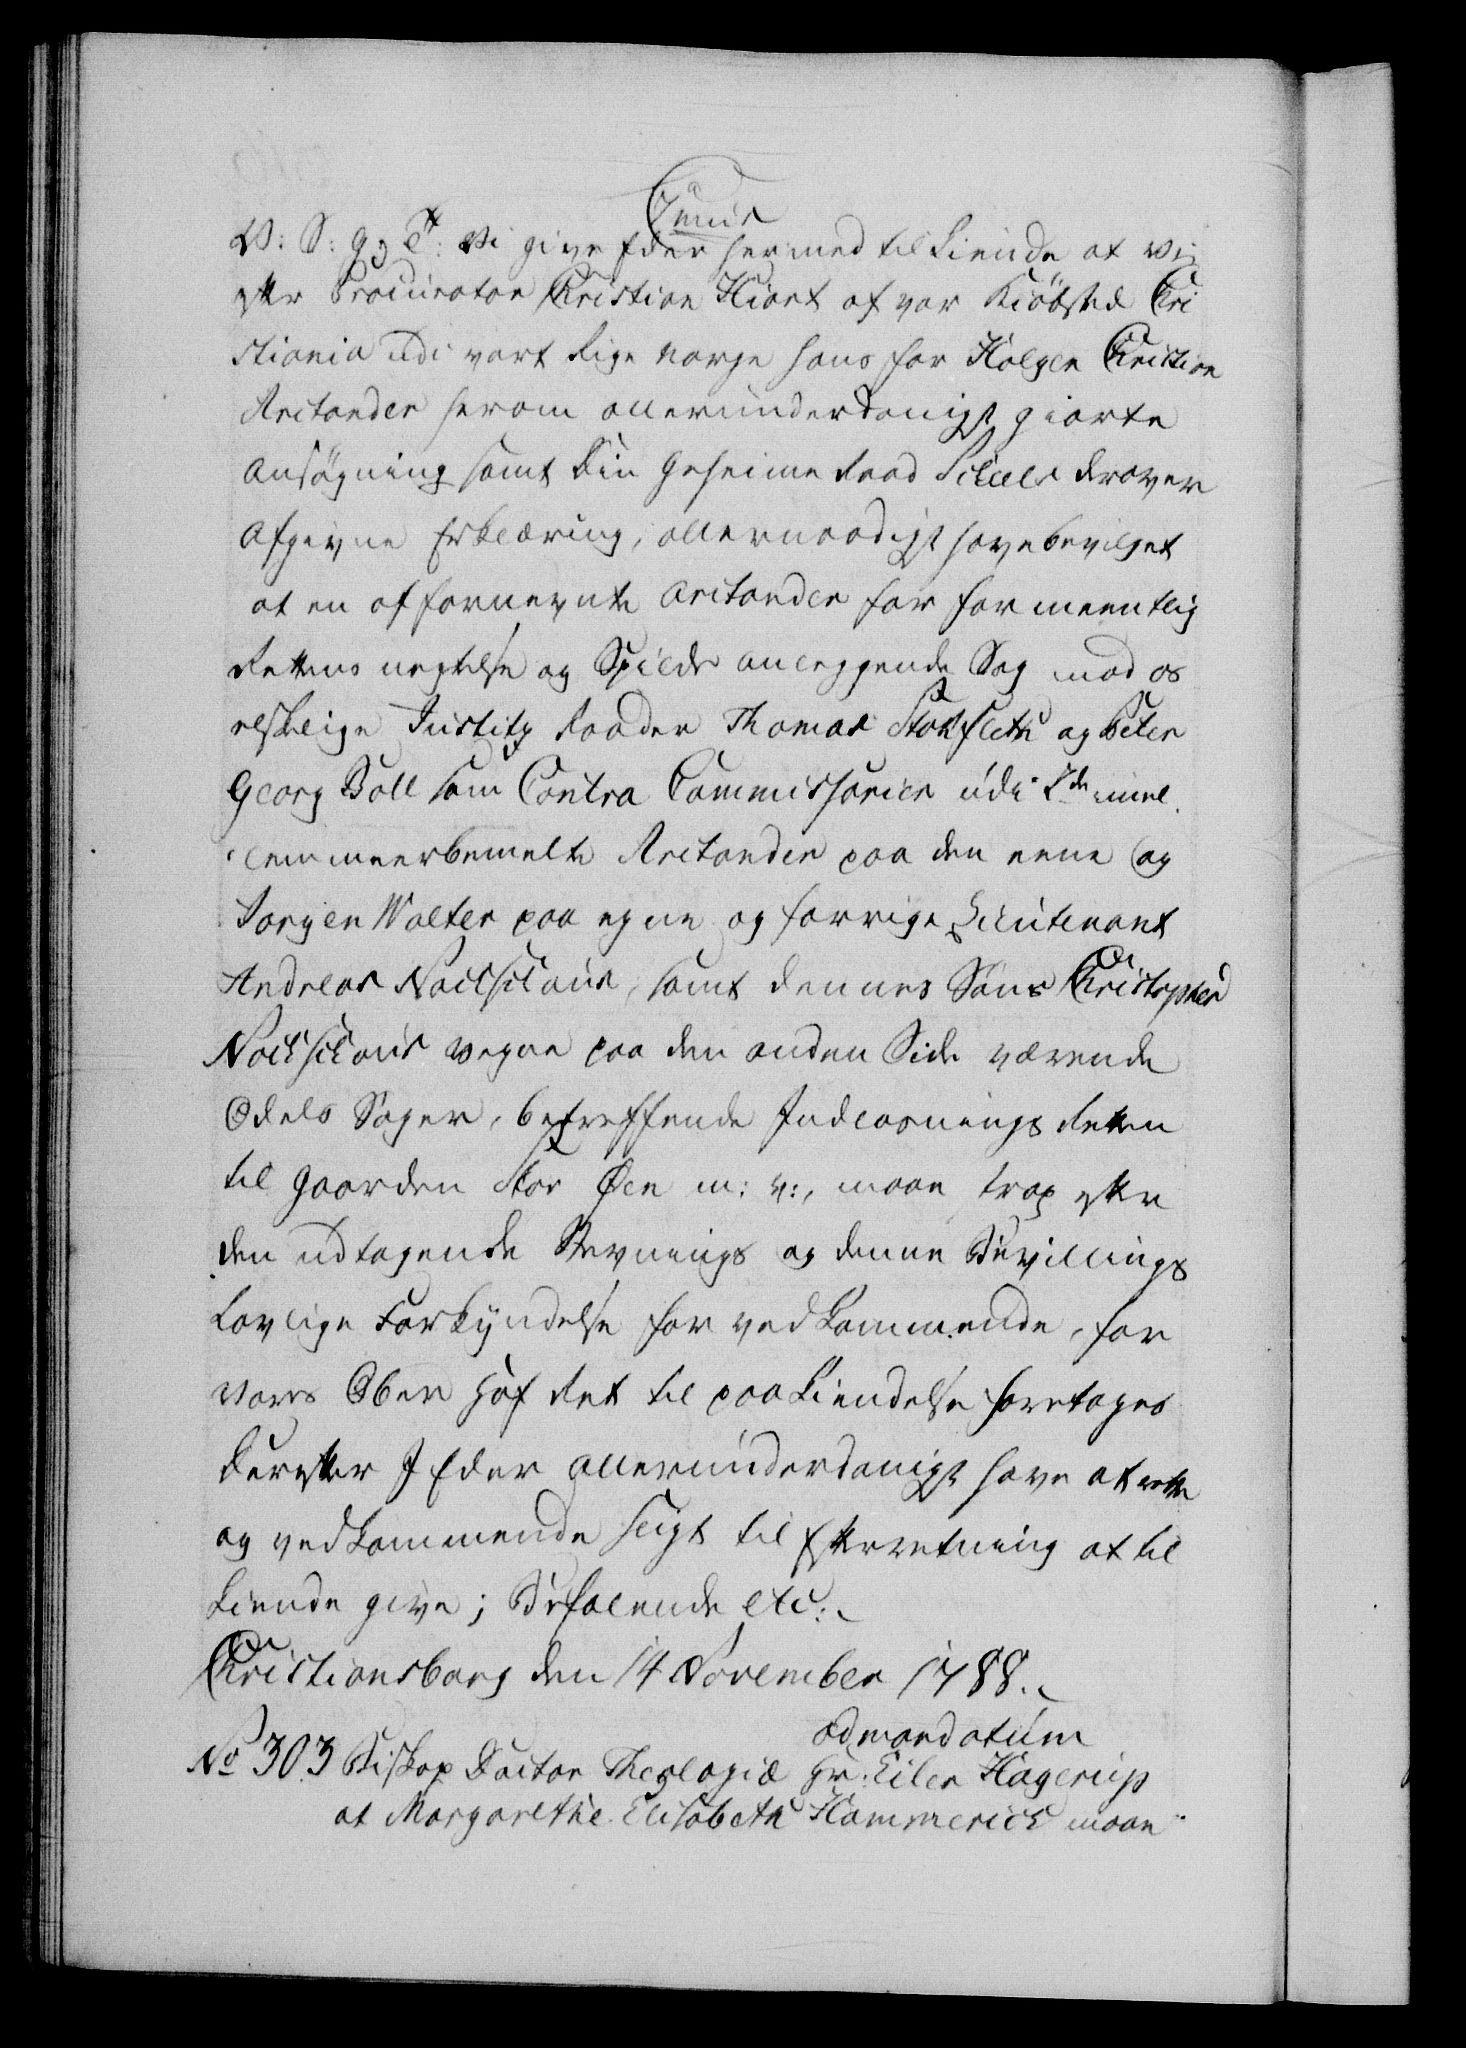 W: S: G: T: Vi give Eder hermed til kiende at vi
efter Procurator Christian Hiort af vor Kiöbsted Chri
stiania udi vort Rige Norge hans for Holger Christian
Arctander herom allerunderdanigst giorte
Ansøgning samt Din Geheime Raad Schiels derover
afgivne Erklæring, allernaadigst have bevilget
at en af fornevnte Arctander for formeentlig
Rettens negtelse og Spilde anleggende Sag mod os
elskelige Justitz Raader Thomas Stokfleth og Peter
Georg Boll som Contra Commissarier udi de imel
lem meerbemelte Arctander paa den eene og
Jørgen Walter paa egne og forrige Lieutenant
Andreas samt dennes Søns Christopher
vegne paa den anden Side værende
Odels Sager, betreffende Indløsnings Retten
til Gaarden Stor Øen m: v:, maae strax efter
den udtagende Stevnings og denne Bevillings
Lovlige Forkyndelse for vedkommende, for
vores Ober Hof Ret til paakiendelse foretages
Derefter I Eder allerunderdanigst have at rette
og vedkommende sligt til Efterretning at til
kiende give; Befalende etc:
Christiansborg den 14 November 1788.
ad mandatum
No 303 Biskop Doctor Theologiæ Hr: Eiler Hagerup
at Margarethe Elisabeth Hammerich maae